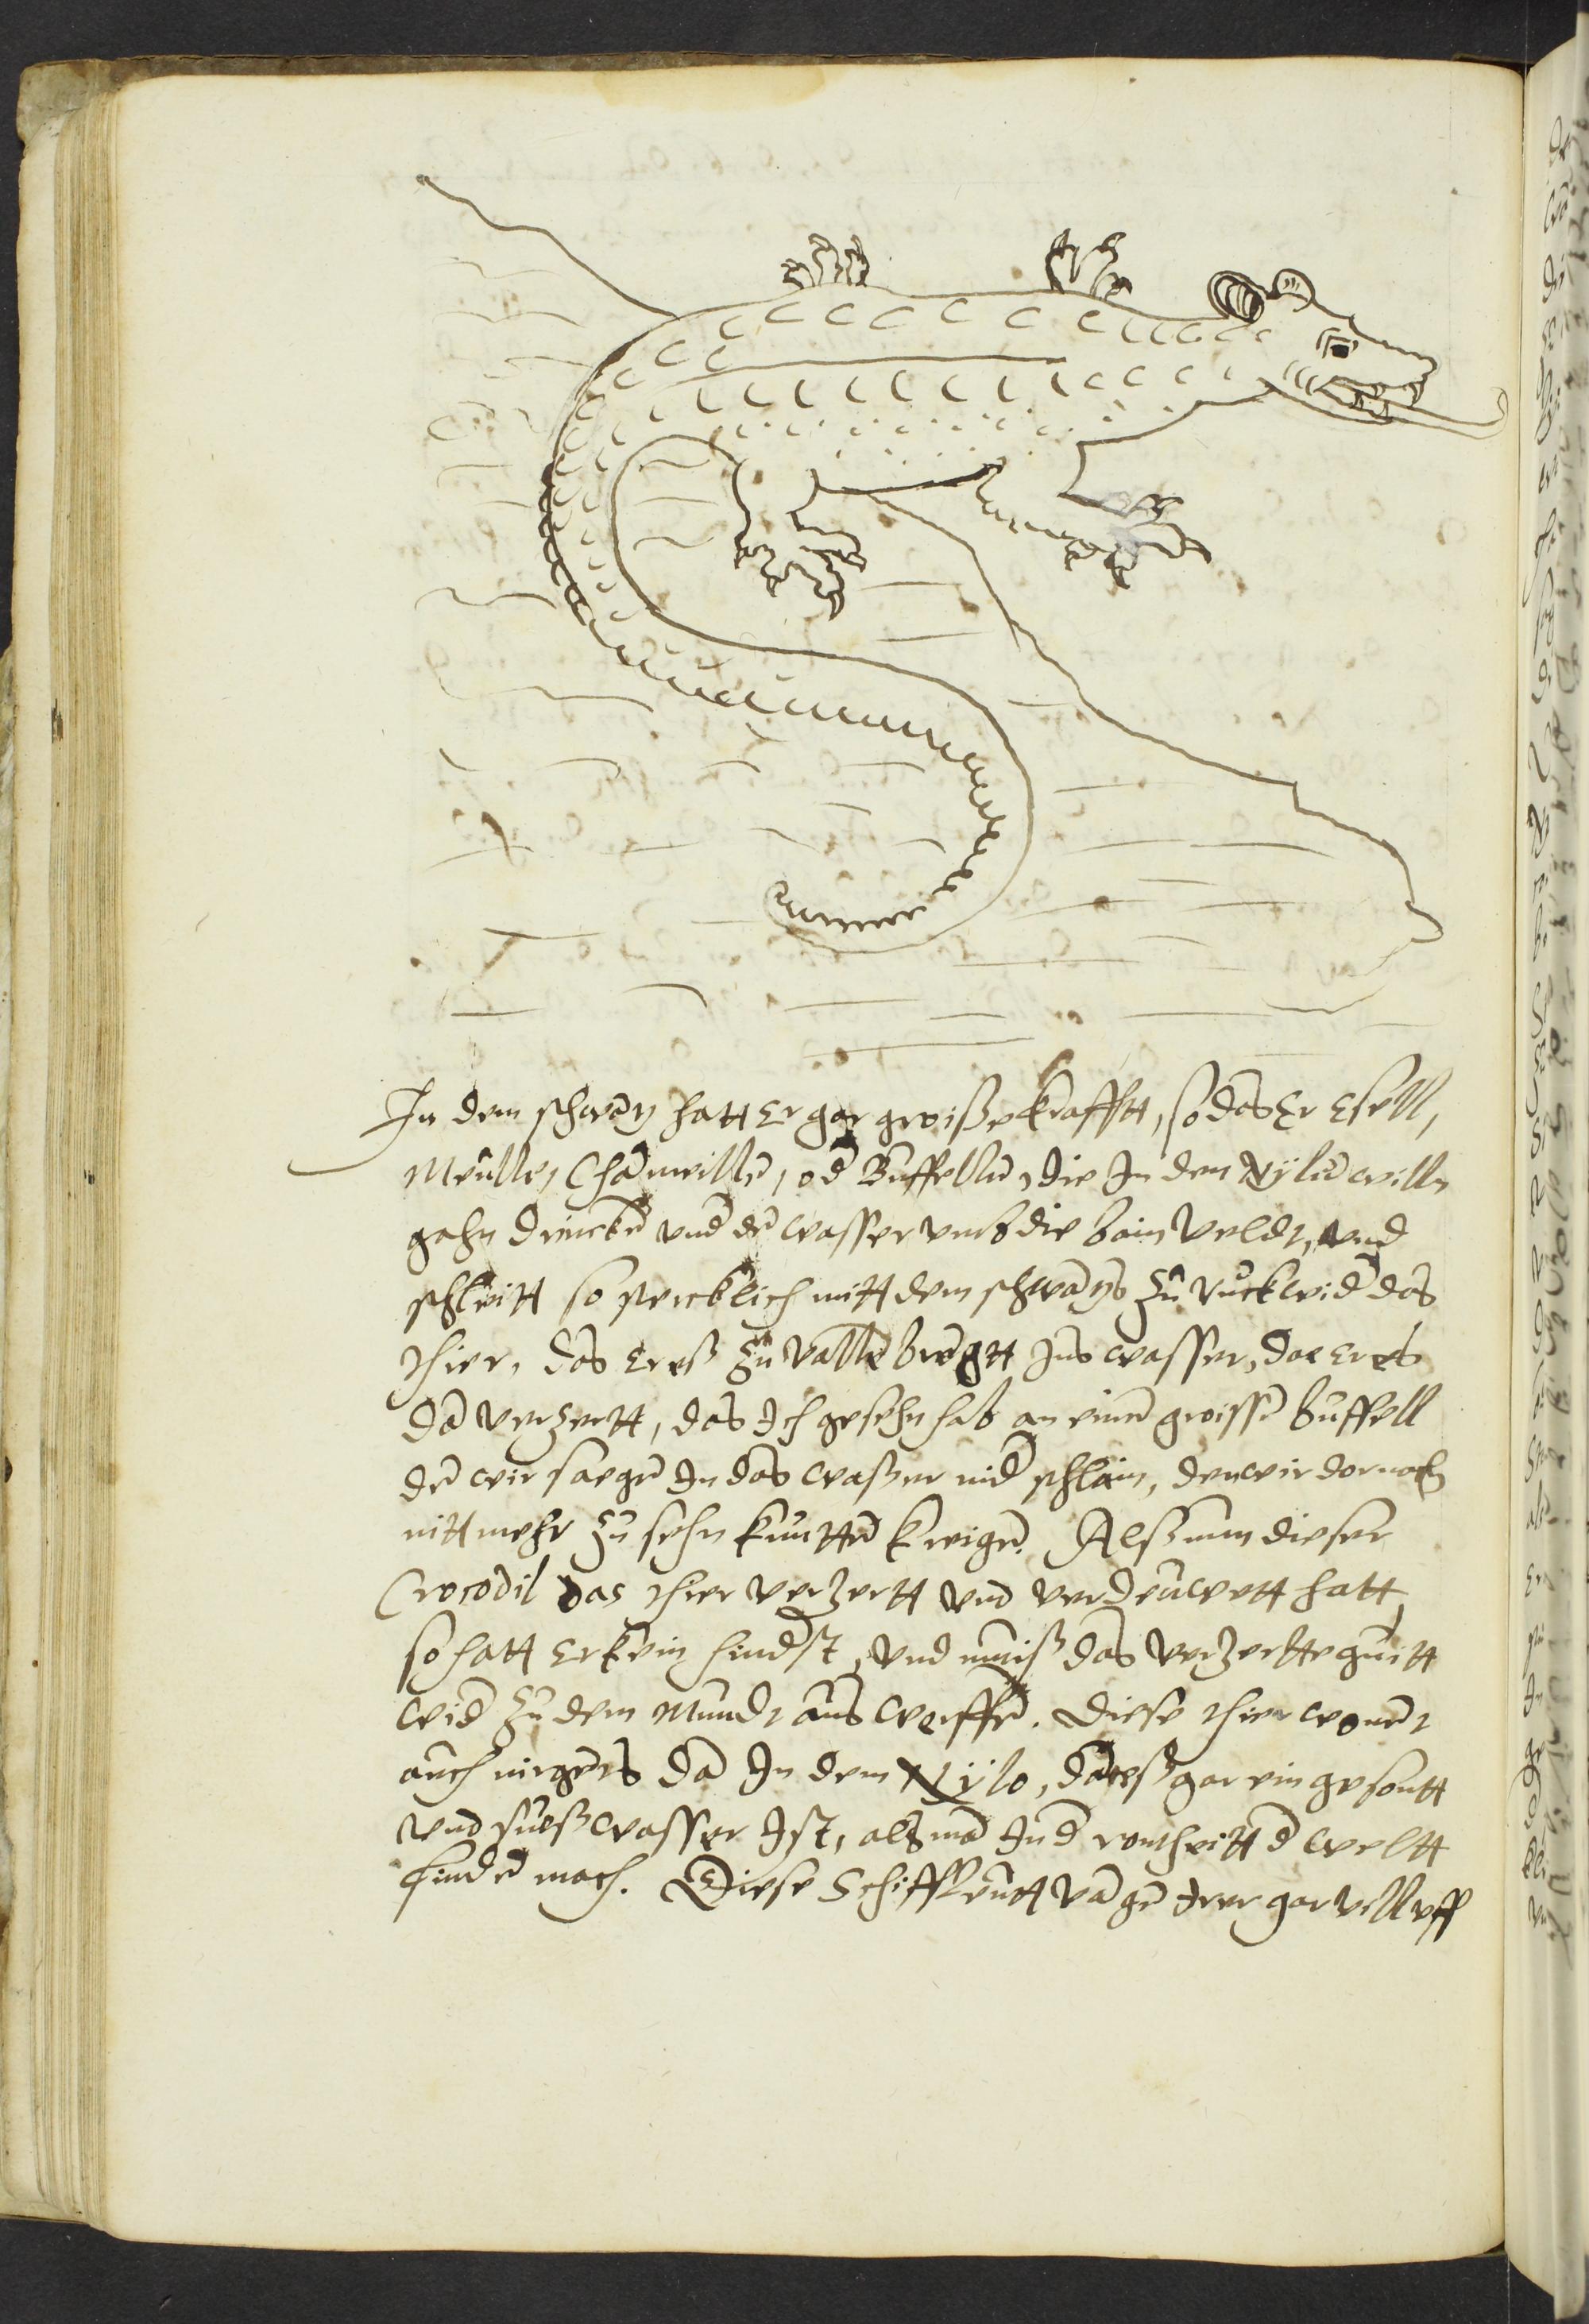 In dem schwa̅tz hatt er gar groisse krafftt, so das er esell,
Meulle, Chameille̅, od̅ Buffellen, die In den Nÿlu̅ willn
gahn drincke̅ und de̅ wasser umb die bain veldt, und
schleitt so stercklich mitt dem schwa̅tz zu ruck wid̅ das
thier, das er eß zu valle bre̅gtt Ins wasser, dae er es
da̅ verzertt, das Ich gesehn hab an eine̅ groisse̅ buffell
de̅ wir saege̅ In das wasser nid̅ schlain, den wir dornach
nitt mehr zu sehn kuntte̅ kreige̅. Alß nun dieser
Crocodil das thier verzertt und verdeuwett hatt,
so hatt er kein hind̅st, und muiß das verzertte gueitt
wid̅ zu dem Mundt aus werffe̅. Diese thier wone̅t
auch nirge̅ts da̅ In dem Nÿlo, da eß gar ein gesontt
und sueß wasser Ist, als ma̅ In d̅ rontheitt d̅ weltt
finde̅ mach. Diese Schiffleutt va̅ge̅ Irer gar vill uff